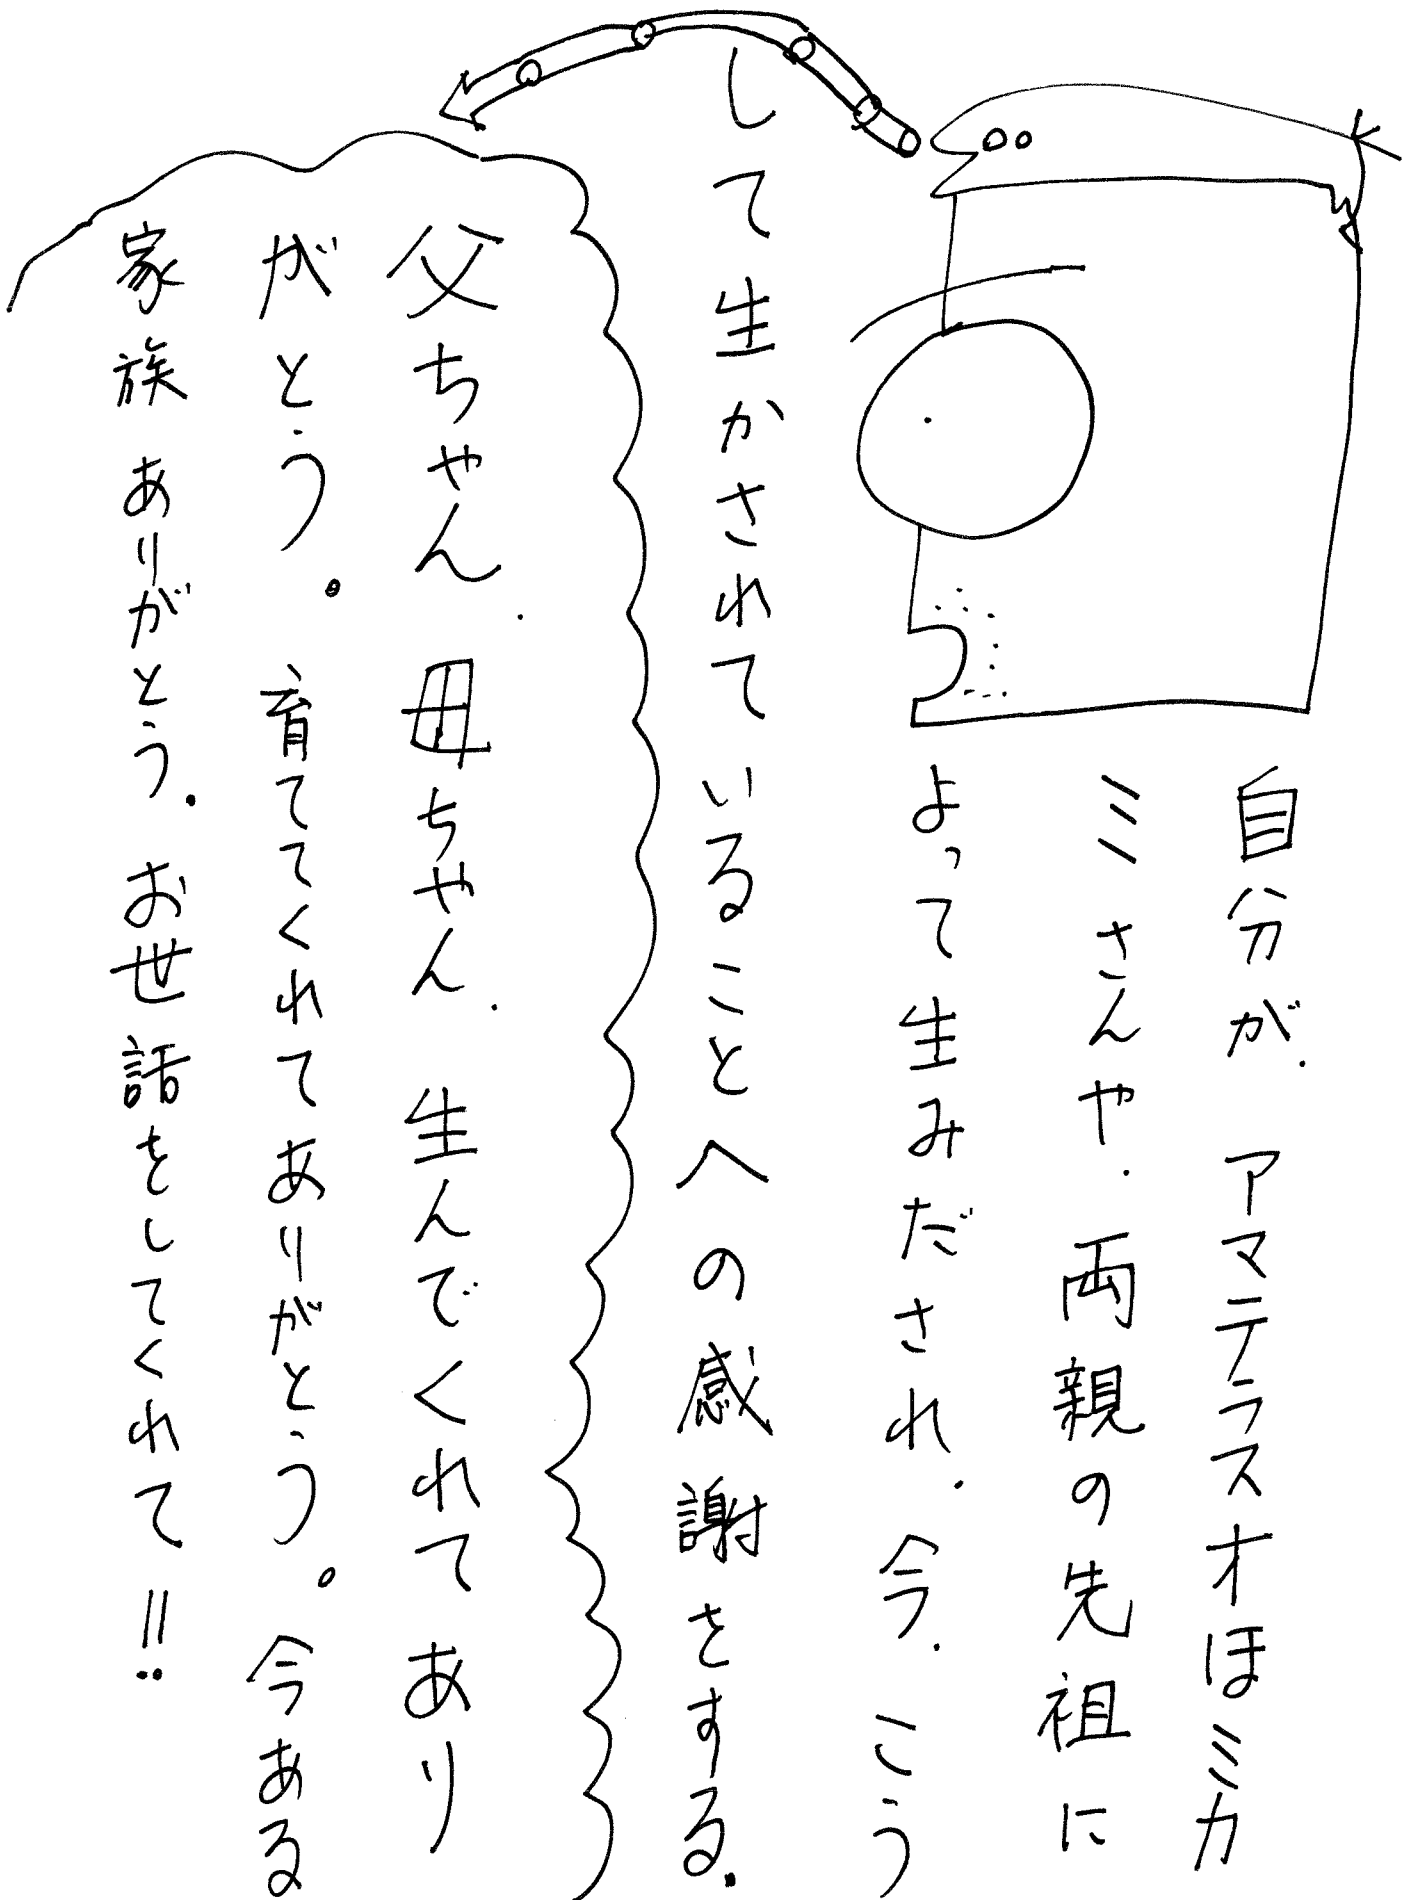 自分が.アマテラスオほミカ
ミさんや.両親の先祖に
よって生みだされ.今.こう
して生かされていることへの感謝をする.
父ちゃん.母ちゃん.生んでくれてあり
がとう。育ててくれてありがとう。今ある
家族ありがとう.お世話をしてくれて!!